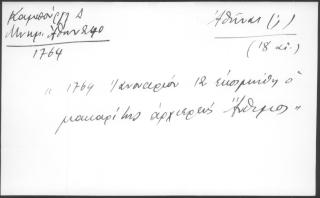 Καμπούρη Δ
Μνημ. Ἀθην 240
1764
Ἀθῆναι (;)
(18 αἰ.)
" 1764 Ἰαννουαρίου 12 εκοιμηθη ὁ
μακαρίτης ἀρχιερεὺς Ἄνθιμος "